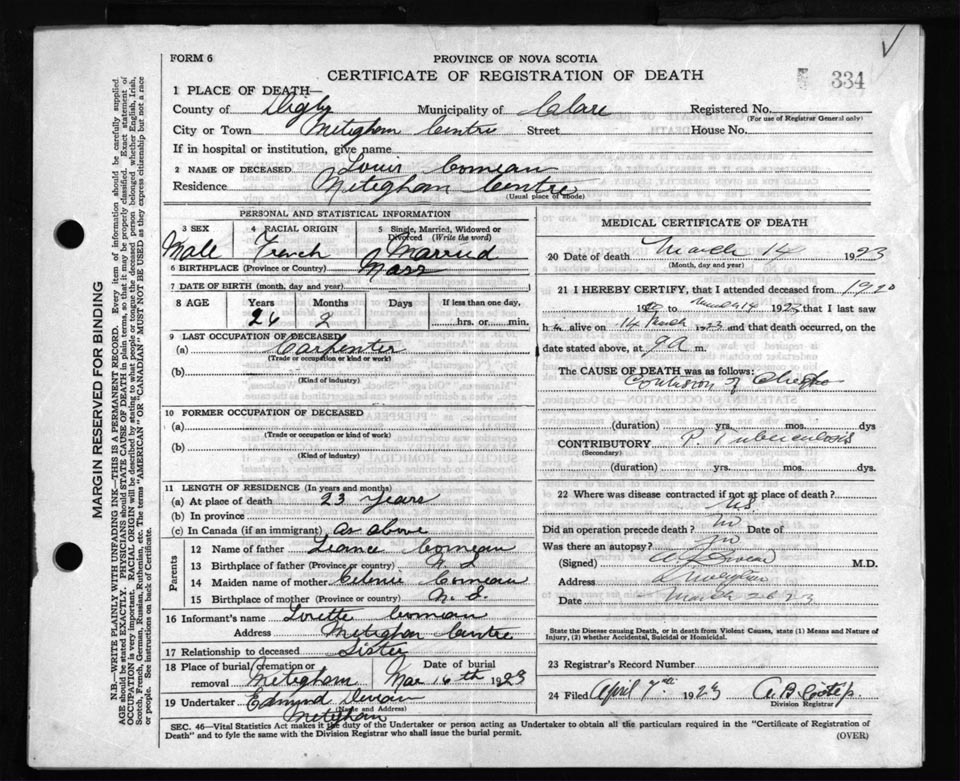 FORM 6
PROVINCE OF NOVA SCOTIA
CERTIFICATE OF REGISTRATION OF DEATH
334
1 PLACE OF DEATH—
County of Digby Municipality of Clare Registered No.
(For use of Registrar General only)
City or Town Meteghan Centre Street House No.
If in hospital or institution, give name
2 NAME OF DECEASED Louis Comeau
Residence Meteghan Centre
(Usual place of abode)
PERSONAL AND STATISTICAL INFORMATION
3 SEX 4 RACIAL ORIGIN 5 Single, Married, Widowed or Divorced (Write the word)
Male French Married
6 BIRTHPLACE (Province or Country) Mass
7 DATE OF BIRTH (month, day and year)
8 AGE Years Months Days If less than one day,
26 2 hrs. or min.
9 LAST OCCUPATION OF DECEASED
(a) Carpenter
(Trade or occupation or kind of work)
(b)
(Kind of industry)
10 FORMER OCCUPATION OF DECEASED
(a)
(Trade or occupation or kind of work)
(b)
(Kind of industry)
11 LENGTH OF RESIDENCE (In years and months)
(a) At place of death 23 years
(b) In province
(c) In Canada (if an immigrant) as above
Parents
12 Name of father Comeau
13 Birthplace of father (Province or country) N. S.
14 Maiden name of mother Celenie Comeau
15 Birthplace of mother (Province or country) N. S.
16 Informant's name Lorette Comeau
Address Meteghan Centre
17 Relationship to deceased Sister
18 Place of burial, cremation or removal Meteghan Date of burial Mar 16th 1923
19 Undertaker Edmund
(Name and Address)
Meteghan
MEDICAL CERTIFICATE OF DEATH
20 Date of death March 14 1923
(Month, day and year)
21 I HEREBY CERTIFY, that I attended deceased from 1920
19 to March 14 1923 that I last saw
h alive on 14 March 1923 and that death occurred, on
date stated above, at 9 A m.
The CAUSE OF DEATH was as follows:
Contusion of Chest
(duration) yrs. mos. dys
CONTRIBUTORY P. Tuberculosis
(Secondary)
(duration) yrs. mos. dys.
22 Where was disease contracted if not at place of death?
U.S.
Did an operation precede death? no Date of
Was there an autopsy? no
(Signed) M.D.
Address
Date March 20 23
State the Disease causing Death, or in death from Violent Causes, state (1) Means and Nature of
Injury, (2) whether Accidental, Suicidal or Homicidal.
23 Registrar's Record Number
24 Filed April 7th 1923
Division Registrar
SEC. 46—Vital Statistics Act makes it the duty of the Undertaker or person acting as Undertaker to obtain all the particulars required in the "Certificate of Registration of
Death" and to fyle the same with the Division Registrar who shall issue the burial permit.
(OVER)
MARGIN RESERVED FOR BINDING
N.B.—WRITE PLAINLY WITH UNFADING INK—THIS IS A PERMANENT RECORD. Every item of information should be carefully supplied.
AGE should be stated EXACTLY. PHYSICIANS should STATE CAUSE OF DEATH in plain terms, so that it may be properly classified. Exact statement of
OCCUPATION is very important. RACIAL ORIGIN will be described by stating to what people or tongue the deceased person belonged whether English, Irish,
Scotch, French, German, Russian, Ruthenian, etc. The terms "AMERICAN" OR "CANADIAN" MUST NOT BE USED as they express citizenship but not a race
or people. See instructions on back of Certificate.